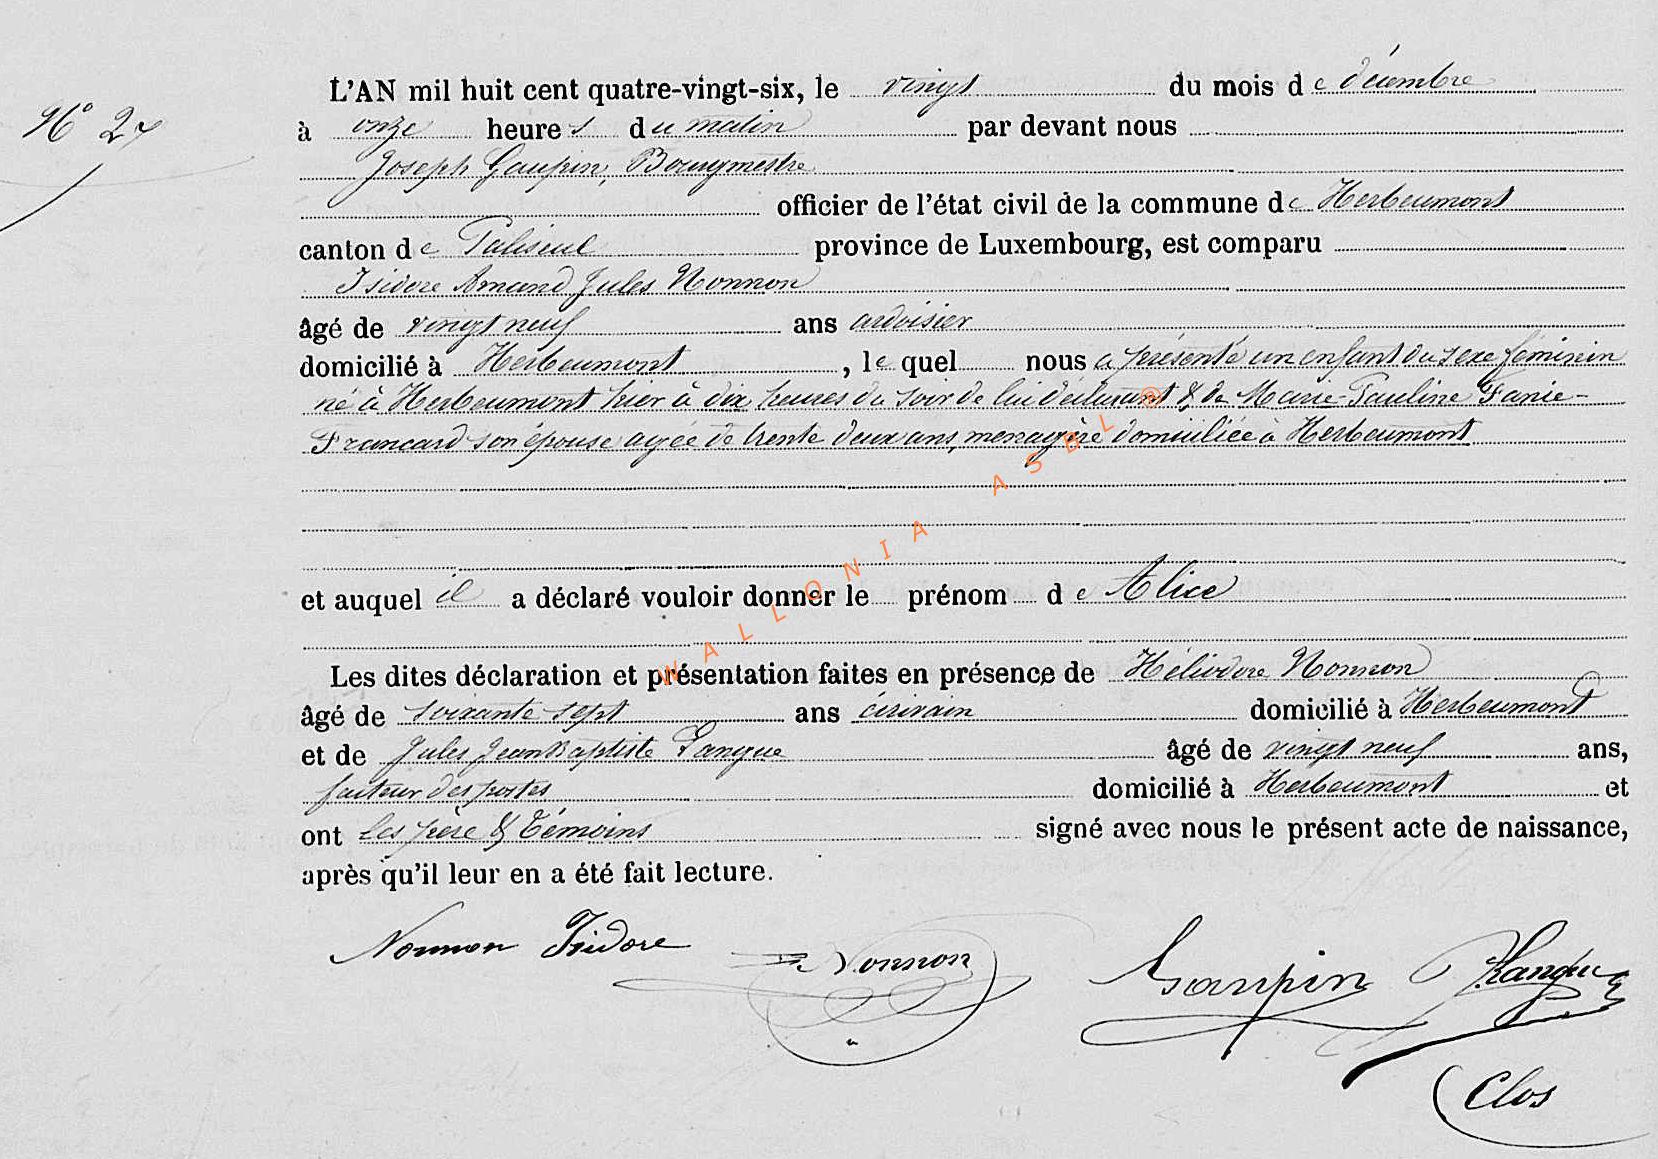 N° 27
L'AN mil huit cent quatre-vingt-six, le vingt du mois de décembre
à onze heures du matin par devant nous
Joseph Gaupin, Bourgmestre
officier de l'état civil de la commune de Herbeumont
canton de Paliseul province de Luxembourg, est comparu
Isidore Amand Jules Nonnon
âgé de vingt neuf ans ardoisier
domicilié à Herbeumont, le quel nous a présenté un enfant du sexe féminin
né à Herbeumont hier à dix heures du soir de lui déclarant & de Marie-Pauline Fanie-
Francard son épouse agée de trente deux ans, menagère domiciliée à Herbeumont
et auquel il a déclaré vouloir donner le prénom de Alice
Les dites déclaration et présentation faites en présence de Héliodore Nonnon
âgé de soixante sept ans écrivain domicilié à Herbeumont
et de Jules Jean Baptiste âgé de vingt neuf ans,
facteur des postes domicilié à Herbeumont et
ont les père & témoins signé avec nous le présent acte de naissance,
après qu'il leur en a été fait lecture.
Nonnon Isidore Nonnon Gaupin
Clos
WALLONIA ASBL ®